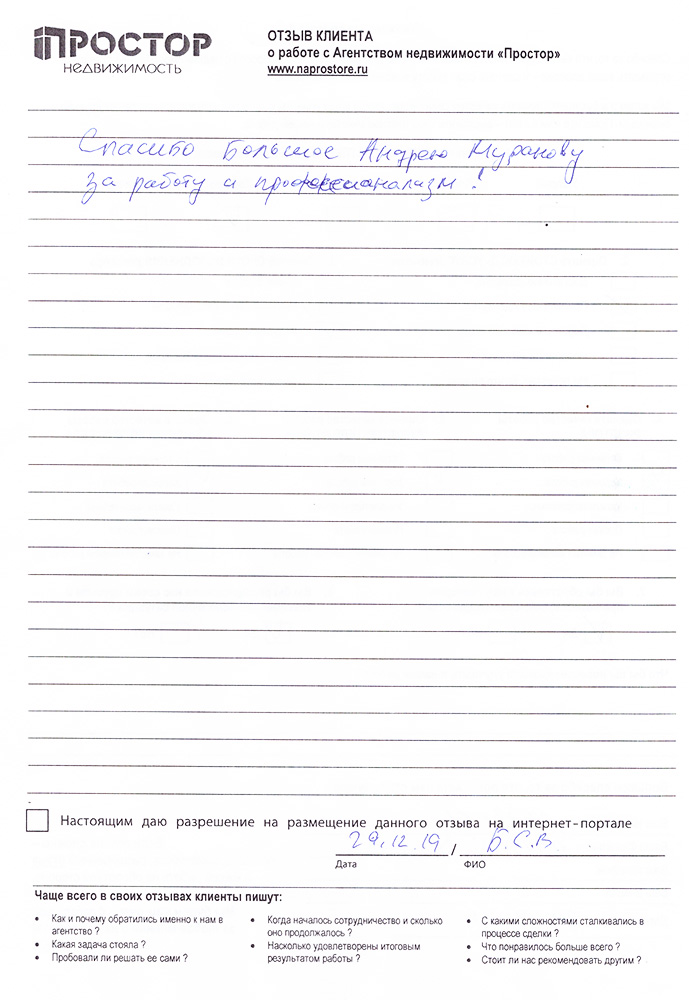 ПРОСТОР
НЕДВИЖИМОСТЬ
ОТЗЫВ КЛИЕНТА
о работе с Агентством недвижимости «Простор»
www.naprostore.ru
Спасибо большое Андрею Муранову
за работу и професианализм!
Настоящим даю разрешение на размещение данного отзыва на интернет-портале
29.12.19 / Б.С.В
Дата ФИО
Чаще всего в своих отзывах клиенты пишут:
• Как и почему обратились именно к нам в агентство ?
• Какая задача стояла ?
• Пробовали ли решать ее сами ?
• Когда началось сотрудничество и сколько оно продолжалось ?
• Насколько удовлетворены итоговым результатом работы ?
• С какими сложностями сталкивались в процессе сделки ?
• Что понравилось больше всего ?
• Стоит ли нас рекомендовать другим ?